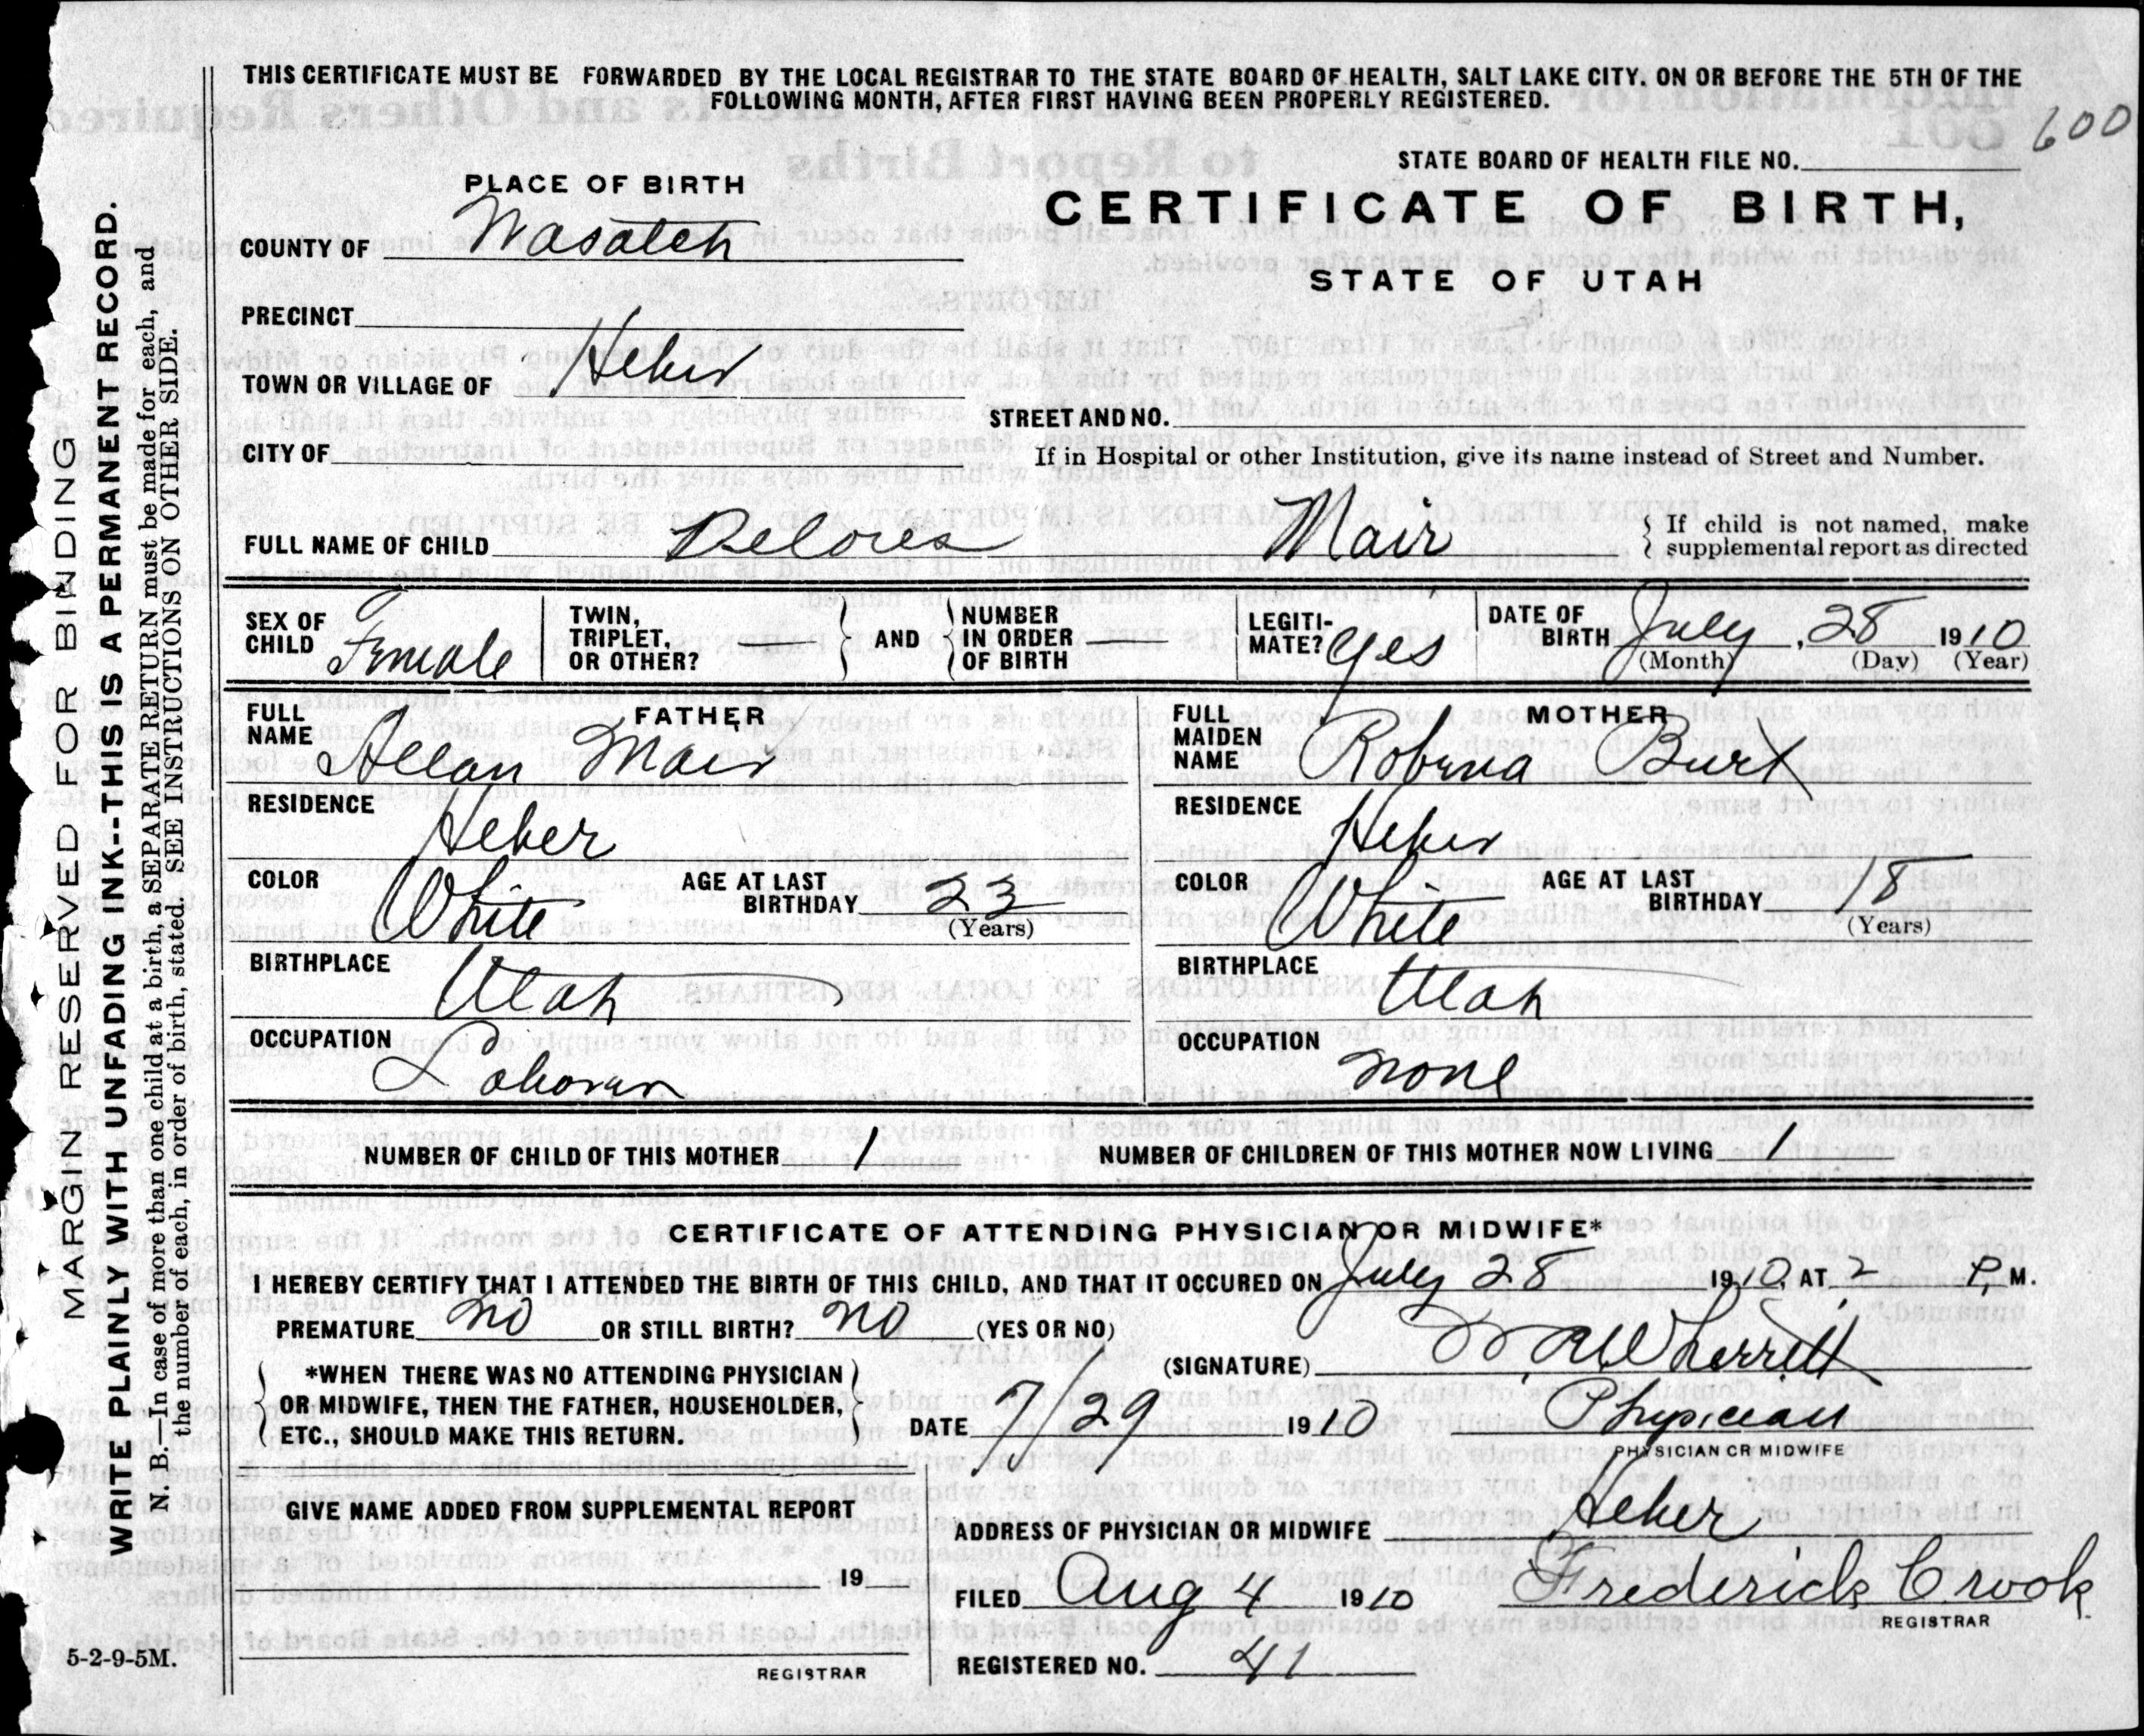 THIS CERTIFICATE MUST BE FORWARDED BY THE LOCAL REGISTRAR TO THE STATE BOARD OF HEALTH, SALT LAKE CITY, ON OR BEFORE THE 5TH OF THE
FOLLOWING MONTH, AFTER FIRST HAVING BEEN PROPERLY REGISTERED.
600
STATE BOARD OF HEALTH FILE NO.
PLACE OF BIRTH
CERTIFICATE OF BIRTH,
STATE OF UTAH
COUNTY OF Wasatch
PRECINCT
TOWN OR VILLAGE OF Heber
STREET AND NO.
CITY OF
If in Hospital or other Institution, give its name instead of Street and Number.
FULL NAME OF CHILD Delores Mair
{ If child is not named, make
supplemental report as directed
SEX OF CHILD Female
TWIN, TRIPLET, OR OTHER? } AND { NUMBER IN ORDER OF BIRTH
LEGITIMATE? Yes
DATE OF BIRTH July, 28 1910
(Month) (Day) (Year)
FATHER
FULL NAME Allan Mair
RESIDENCE Heber
COLOR White AGE AT LAST BIRTHDAY 22
(Years)
BIRTHPLACE Utah
OCCUPATION Laborer
MOTHER
FULL MAIDEN NAME Robena Burt
RESIDENCE Heber
COLOR White AGE AT LAST BIRTHDAY 18
(Years)
BIRTHPLACE Utah
OCCUPATION none
NUMBER OF CHILD OF THIS MOTHER 1 NUMBER OF CHILDREN OF THIS MOTHER NOW LIVING 1
CERTIFICATE OF ATTENDING PHYSICIAN OR MIDWIFE*
I HEREBY CERTIFY THAT I ATTENDED THE BIRTH OF THIS CHILD, AND THAT IT OCCURED ON July 28 1910, AT 2 P. M.
PREMATURE no OR STILL BIRTH? no (YES OR NO)
(SIGNATURE) Wherrett
{ *WHEN THERE WAS NO ATTENDING PHYSICIAN
OR MIDWIFE, THEN THE FATHER, HOUSEHOLDER,
ETC., SHOULD MAKE THIS RETURN. }
DATE 7/29 1910 Physician
PHYSICIAN OR MIDWIFE
GIVE NAME ADDED FROM SUPPLEMENTAL REPORT
19
REGISTRAR
ADDRESS OF PHYSICIAN OR MIDWIFE Heber
FILED Aug 4 1910 Frederick Crook
REGISTRAR
REGISTERED NO. 41
5-2-9-5M.
MARGIN RESERVED FOR BINDING
WRITE PLAINLY WITH UNFADING INK--THIS IS A PERMANENT RECORD.
N. B.—In case of more than one child at a birth, a SEPARATE RETURN must be made for each, and
the number of each, in order of birth, stated. SEE INSTRUCTIONS ON OTHER SIDE.